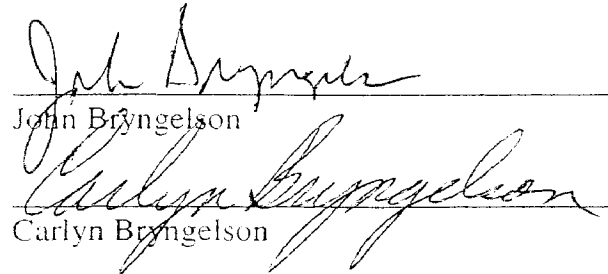 John Bryngelson
John Bryngelson
Carlyn Bryngelson
Carlyn Bryngelson